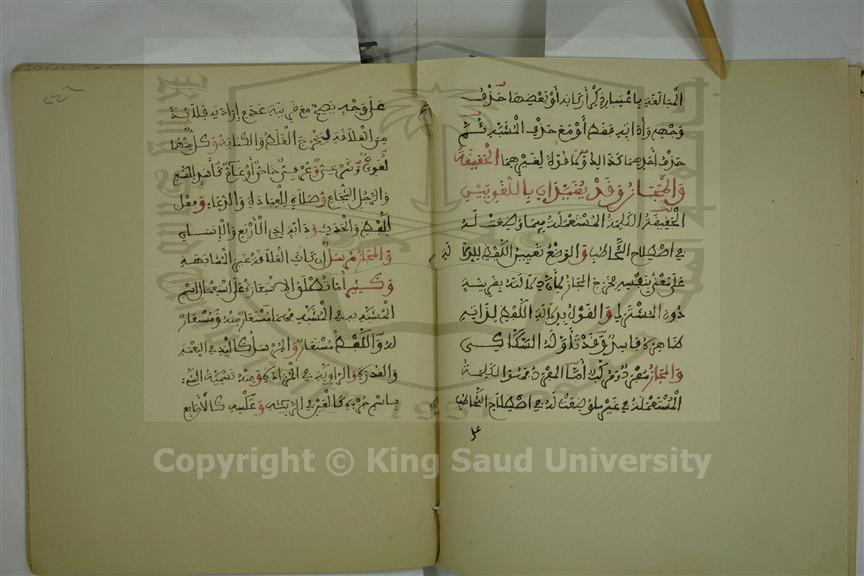 المبالغة باعتبار ذكر أركانه أو بعضها حذف
وجهه وأداته فقط أو مع حذف المشبه ثم
حذف أحدهما كذلك ولا قوة لغيرهما الحقيقة
والمجاز وقد يقيدان باللغويين
الحقيقة الكلمة المستعملة فيما وضعت له
في اصطلاح التخاطب والوضع تعيين اللفظ للدلالة
على معنى بنفسه فخرج المجاز لأن دلالته بقرينة
دون المشترك والقول بدلالة اللفظ لذاته
ظاهره فاسد وقد تأوله السكاكي
والمجاز مفرد ومركب أما المفرد فهو الكلمة
المستعملة في غير ما وضعت له في اصطلاح التخاطب
على
على وجه يصح مع قرينة عدم إرادته فلا بد
من العلاقة ليخرج الغلط والكناية وكل منهما
لغوي وشرعي وعرفي خاص أو عام كأسد للسبع
والرجل الشجاع وصلاة للعبادة والدعاء وفعل
للفظ والحدث ودابة لذي الأربع والإنسان
والمجاز مرسل إن كانت العلاقة غير المشابهة
وكثيرا ما تطلق الاستعارة على استعمال اسم
المشبه به في المشبه فهما مستعار منه ومستعار
له واللفظ مستعار والمرسل كاليد في النعمة
والقدرة والراوية في المزادة ومنه تسمية الشيء
باسم جزئه كالعين في الربيئة وعكسه كالأصابع
Copyright © King Saud University